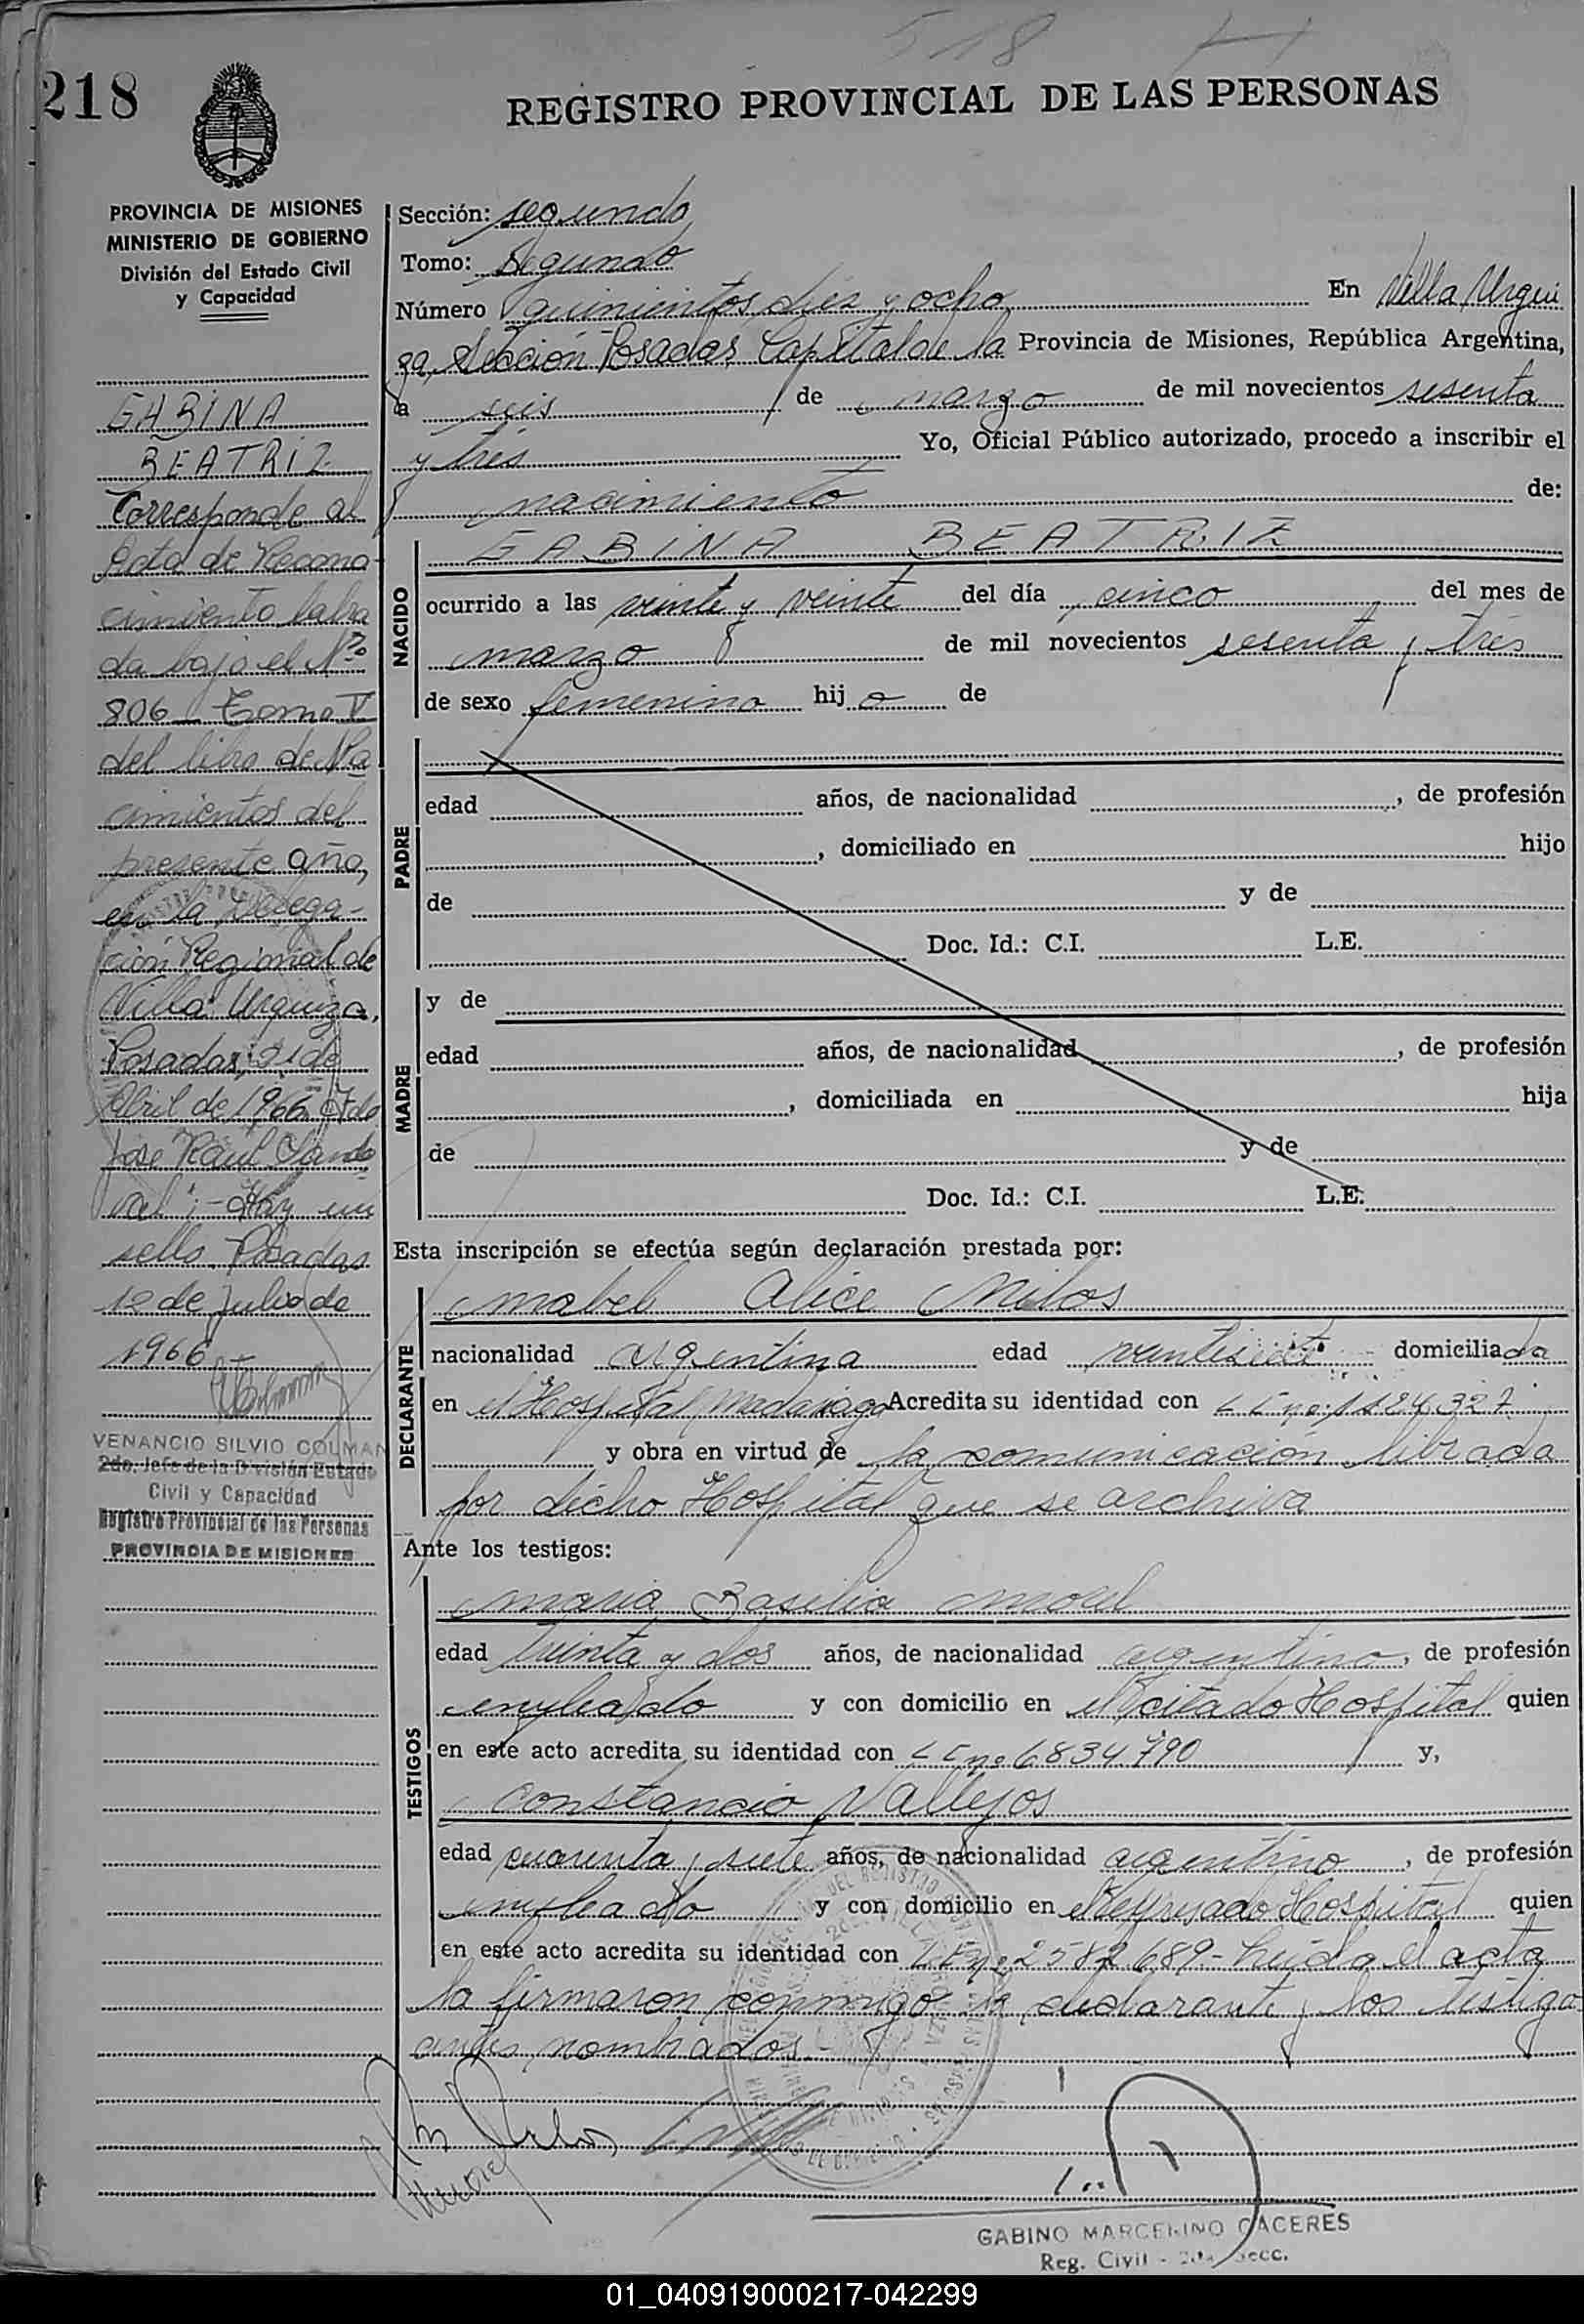 518
218
REGISTRO PROVINCIAL DE LAS PERSONAS
PROVINCIA DE MISIONES
MINISTERIO DE GOBIERNO
División del Estado Civil
y Capacidad
GABINA
BEATRIZ
Corresponde al
Acta de Recono
cimiento labra
da bajo el Nº
806 Tomo V
del libro de Na
cimientos del
presente año,
en la Delega-
ción Regional de
Villa Urquiza.
Posadas, 21 de
Abril de 1966. Fdo
José Raúl Sando
val".- Hay un
sello. Posadas
12 de Julio de
1966
VENANCIO SILVIO COLMAN
2do. Jefe de la División Estado
Civil y Capacidad
Registro Provincial de las Personas
PROVINCIA DE MISIONES
Sección: segunda
Tomo: Segundo
Número quinientos diez y ocho En Villa Urqui
za, Sección Posadas Capital de la Provincia de Misiones, República Argentina,
a seis de marzo de mil novecientos sesenta
y tres Yo, Oficial Público autorizado, procedo a inscribir el
nacimiento de:
NACIDO
GABINA BEATRIZ
ocurrido a las veinte y veinte del día cinco del mes de
marzo de mil novecientos sesenta y tres
de sexo femenino hij a de
PADRE
edad años, de nacionalidad , de profesión
, domiciliado en hijo
de y de
Doc. Id.: C.I. L.E.
MADRE
y de
edad años, de nacionalidad , de profesión
, domiciliada en hija
de y de
Doc. Id.: C.I. L.E.
Esta inscripción se efectúa según declaración prestada por:
DECLARANTE
Mabel Alice Milos
nacionalidad argentina edad domiciliada
en el Hospital Madariaga Acredita su identidad con
y obra en virtud de la comunicación librada
por dicho Hospital que se archiva
Ante los testigos:
TESTIGOS
Maria Basilia
edad treinta y dos años, de nacionalidad argentina, de profesión
empleado y con domicilio en el citado Hospital quien
en este acto acredita su identidad con no 6834790 y,
Constancio Vallejos
edad cuarenta y siete años, de nacionalidad argentino, de profesión
empleado y con domicilio en el expresado Hospital quien
en este acto acredita su identidad con 2582689.- Leída el acta
la firmaron conmigo la declarante y los testigo
antes nombrados.-
GABINO MARCELINO CACERES
Reg. Civil - 2da Secc.
01_040919000217-042299